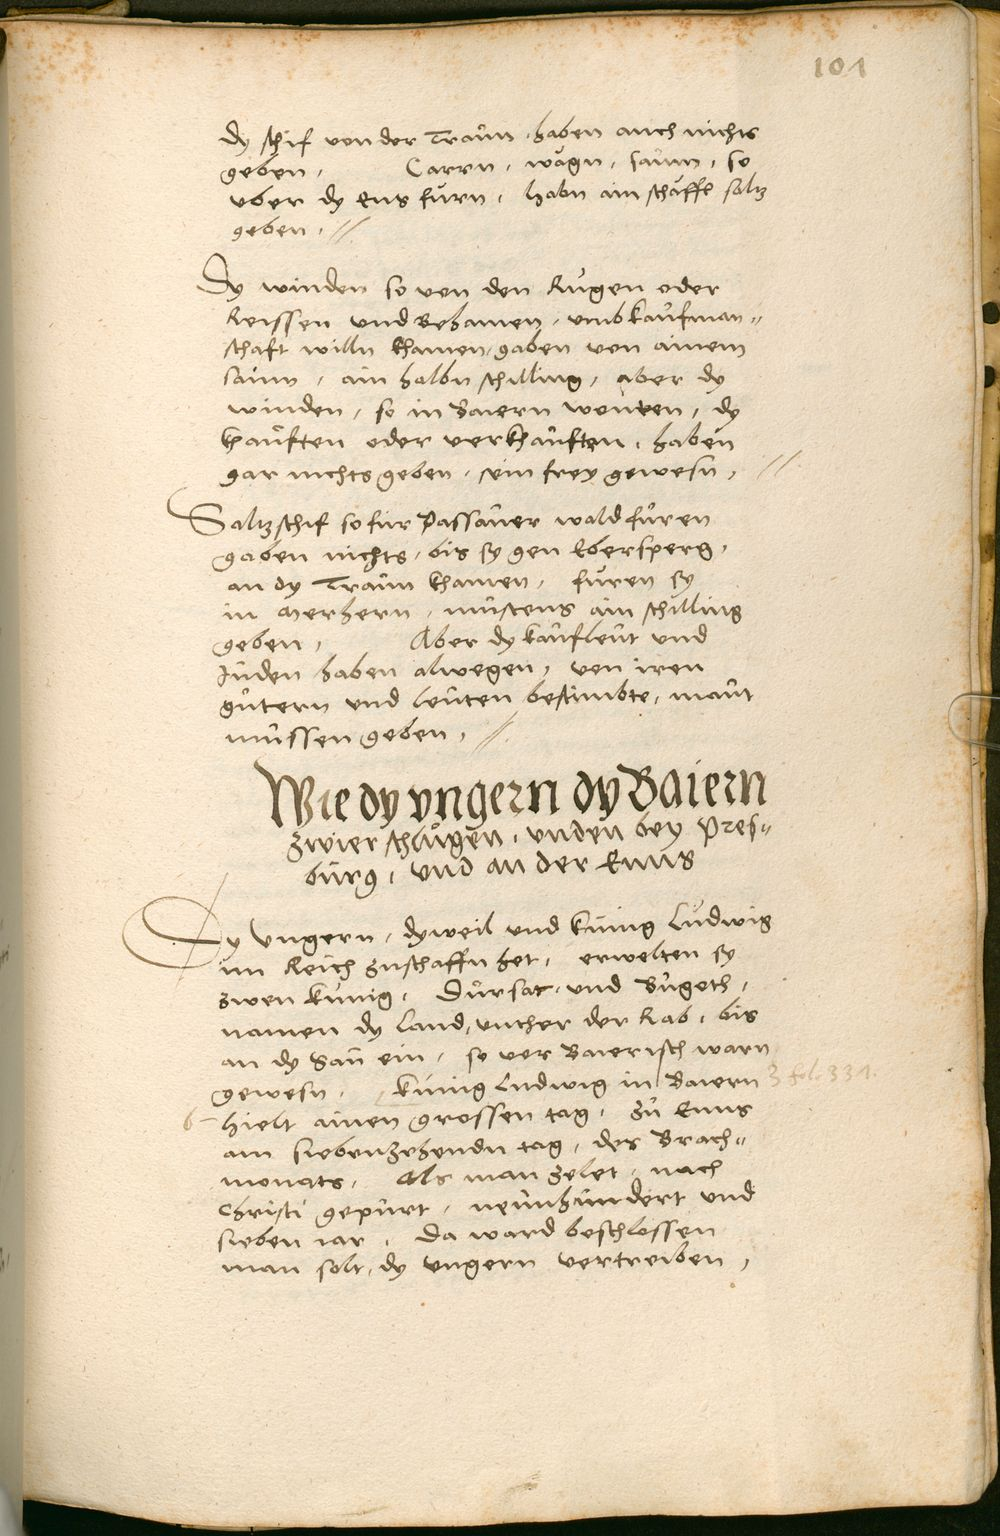 101
dy schif von der Traun, haben auch nichts
geben, Carrn, wägn, saum, so
uber dy Ens furn, habn ain schäffl saltz
geben, //
Dy winden so von den Rugen oder
Reissen und Behamen, umb kaufman-
schaft willn khamen, gaben von ainem
saum, ain halbn schilling, aber dy
winden, so in Baiern wonten, dy
khauften oder verkhauften, haben
gar nichts geben, sein frey gewesn, //
Saltzschif so fur Passauer wald furen
gaben nichts, bis sy gen Ebersperg,
an dy Traun khamen, furen sy
in Merhern, mustens ain schilling
geben, Aber dy kaufleut und
Juden haben alwegen, von iren
gutern und leuten bestimbte, maut
mussen geben, //
Wie dy ungern dy Baiern
zwier schlugen, unden bey Pres-
burg, und an der Enns
Dy Ungern, dyweil und kunig Ludwig
im Reich zuschaffn het, erwelten sy
zwen kunig, Dursac, und Bugeth,
namen dy land, unther der Rab, bis
an dy Sau ein, so vor Baierisch warn
gewesn, kunig Ludwig in Baiern 3 fol. 331.
6 hielt ainen grossen tag, zu Enns
am siebenzehendn tag, des Brach-
monats, Als man zelet, nach
Christi gepurt, neunhundert und
sieben iar, Da ward beschlossen
man solt, dy ungern vertreiben,